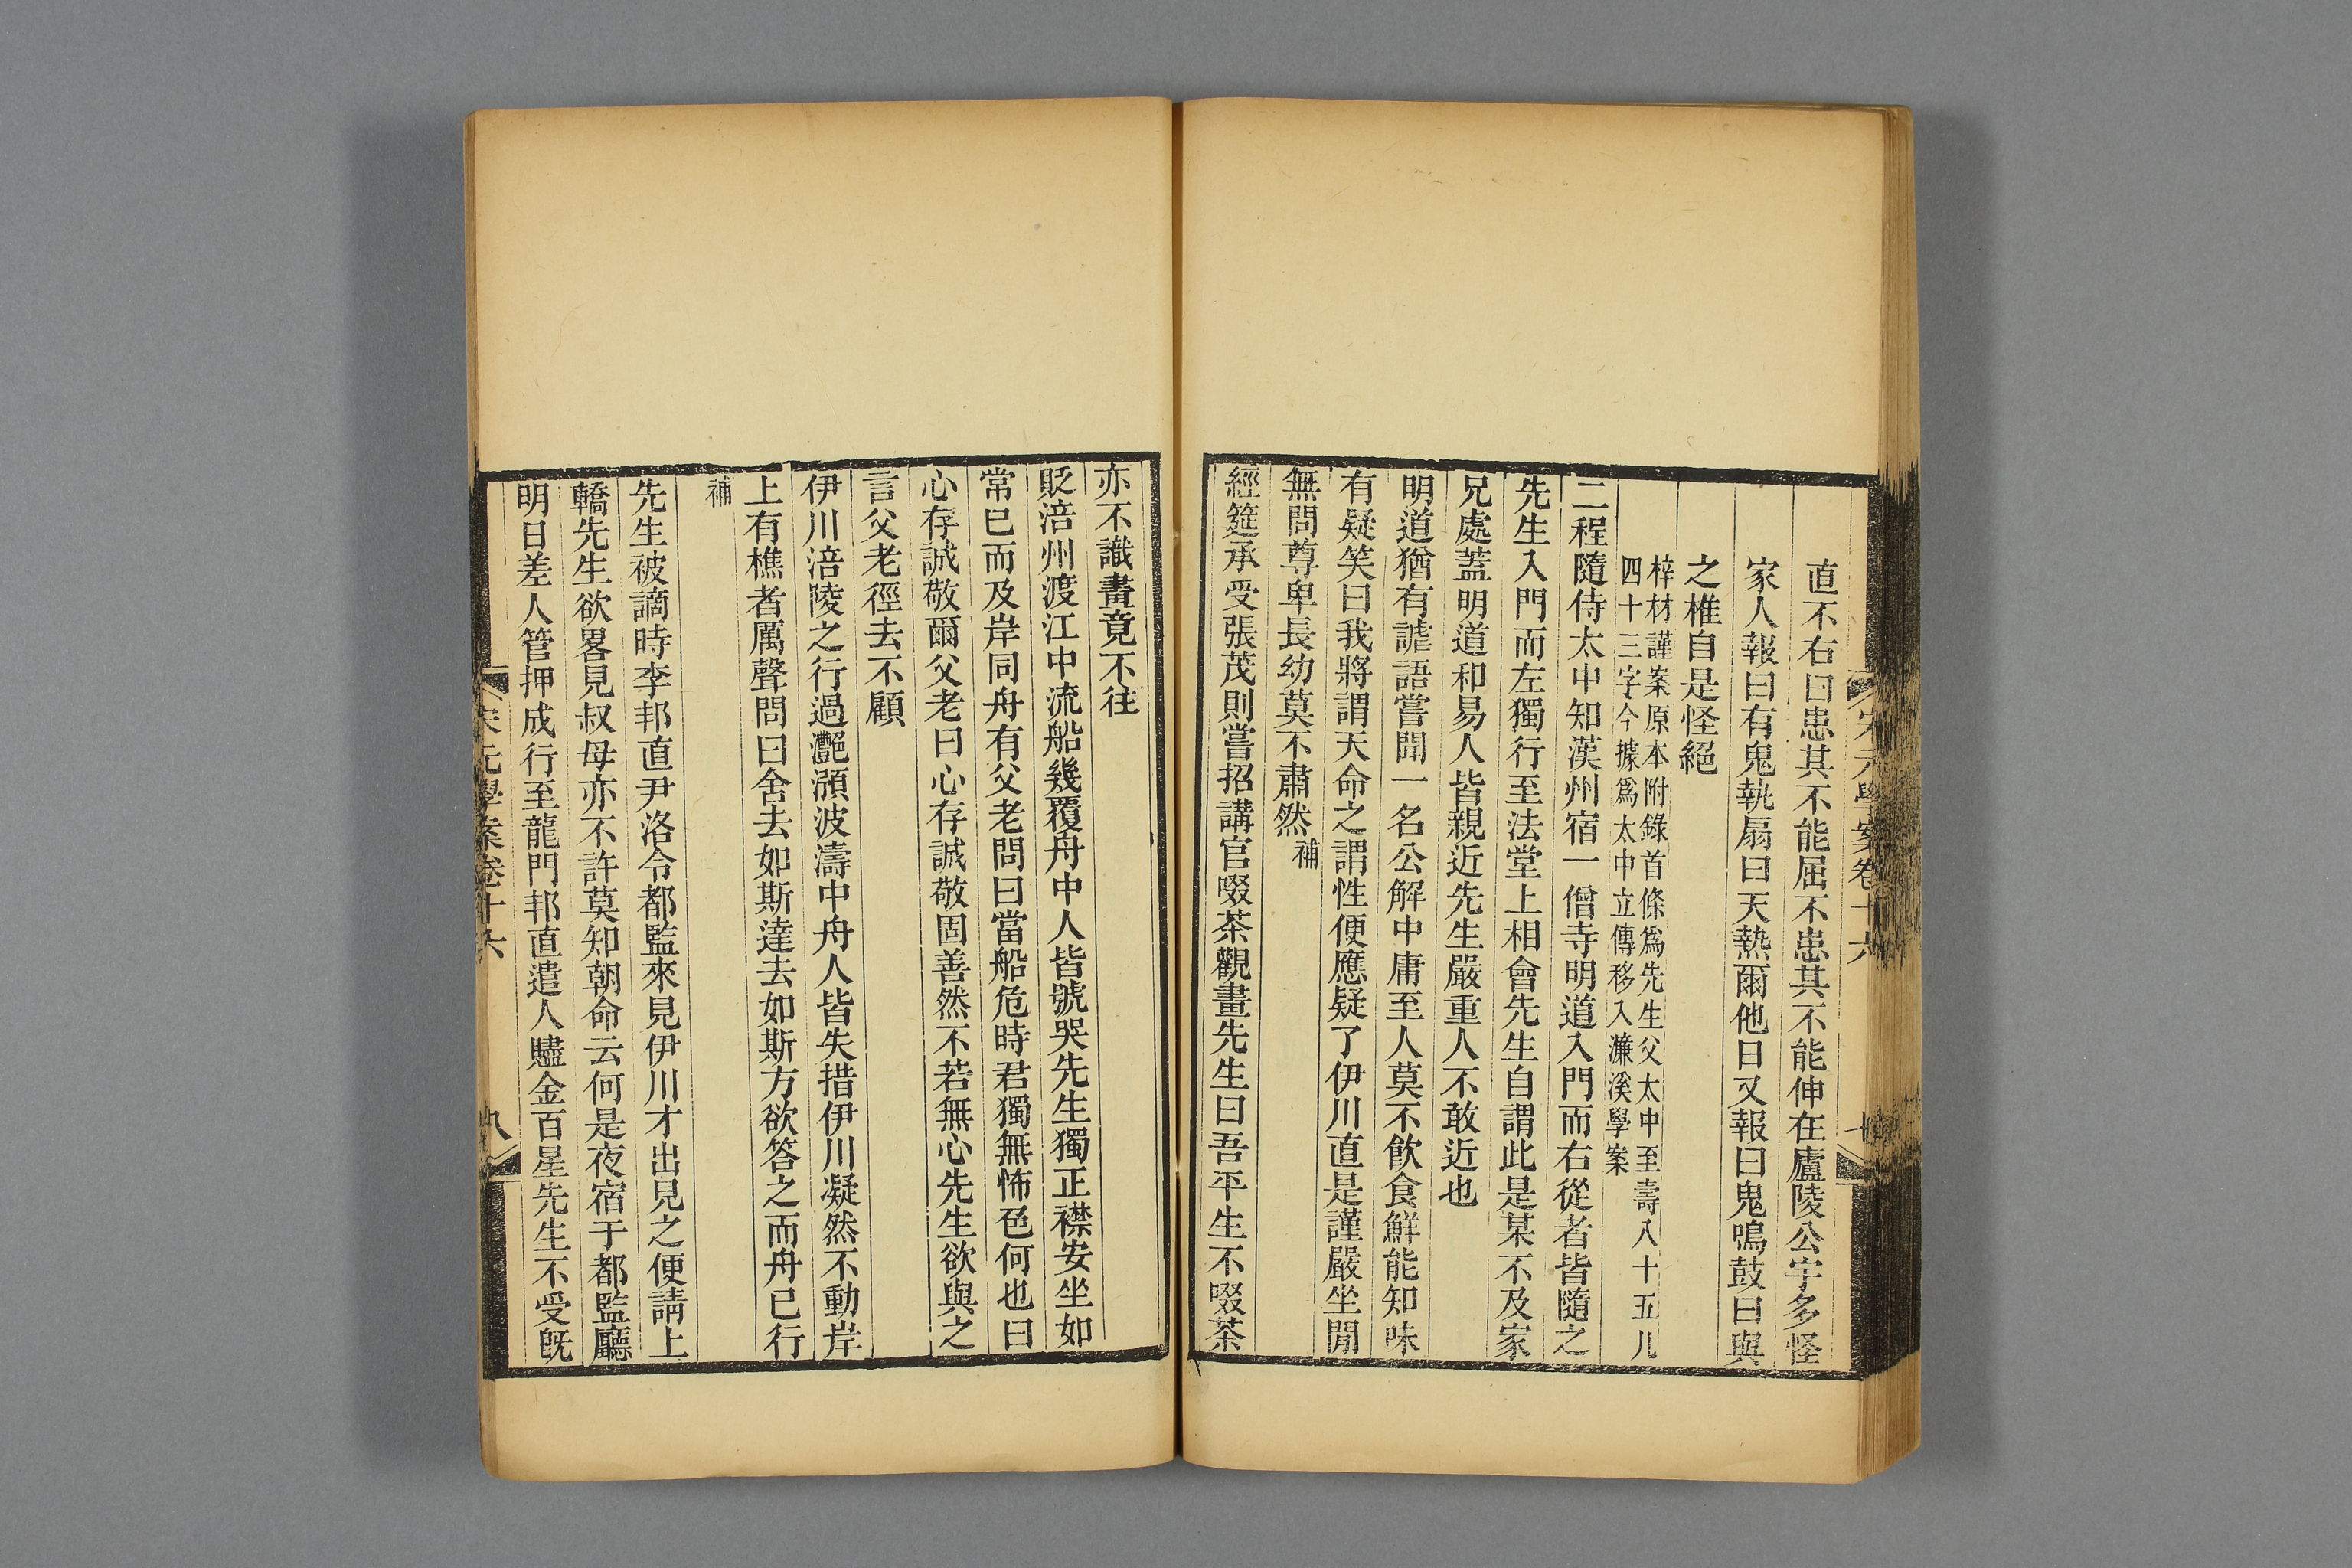 宋元學案卷十六
直不右曰患其不能屈不患其不能伸在廬陵公宇多怪
家人報曰有鬼執扇曰天熱爾他日又報曰鬼鳴鼓曰與
之椎自是怪絕
梓材謹案原本附錄首條爲先生父太中至壽八十五凡
四十三字今據爲太中立傳移入濂溪學案
二程隨侍太中知漢州宿一僧寺明道入門而右從者皆隨之
先生入門而左獨行至法堂上相會先生自謂此是某不及家
兄處蓋明道和易人皆親近先生嚴重人不敢近也
明道猶有謔語嘗聞一名公解中庸至人莫不飮食鮮能知味
有疑笑曰我將謂天命之謂性便應疑了伊川直是謹嚴坐閒
無問尊卑長幼莫不肅然補
經筵承受張茂則嘗招講官啜茶觀畫先生曰吾平生不啜茶
亦不識畫竟不往
貶涪州渡江中流船幾覆舟中人皆號哭先生獨正襟安坐如
常已而及岸同舟有父老問曰當船危時君獨無怖色何也曰
心存誠敬爾父老曰心存誠敬固善然不若無心先生欲與之
言父老徑去不顧
伊川涪陵之行過灩澦波濤中舟人皆失措伊川凝然不動岸
上有樵者厲聲問曰舍去如斯達去如斯方欲答之而舟已行
補
先生被謫時李邦直尹洛令都監來見伊川才出見之便請上
轎先生欲畧見叔母亦不許莫知朝命云何是夜宿于都監廳
明日差人管押成行至龍門邦直遣人贐金百星先生不受旣
宋元學案卷十六
八